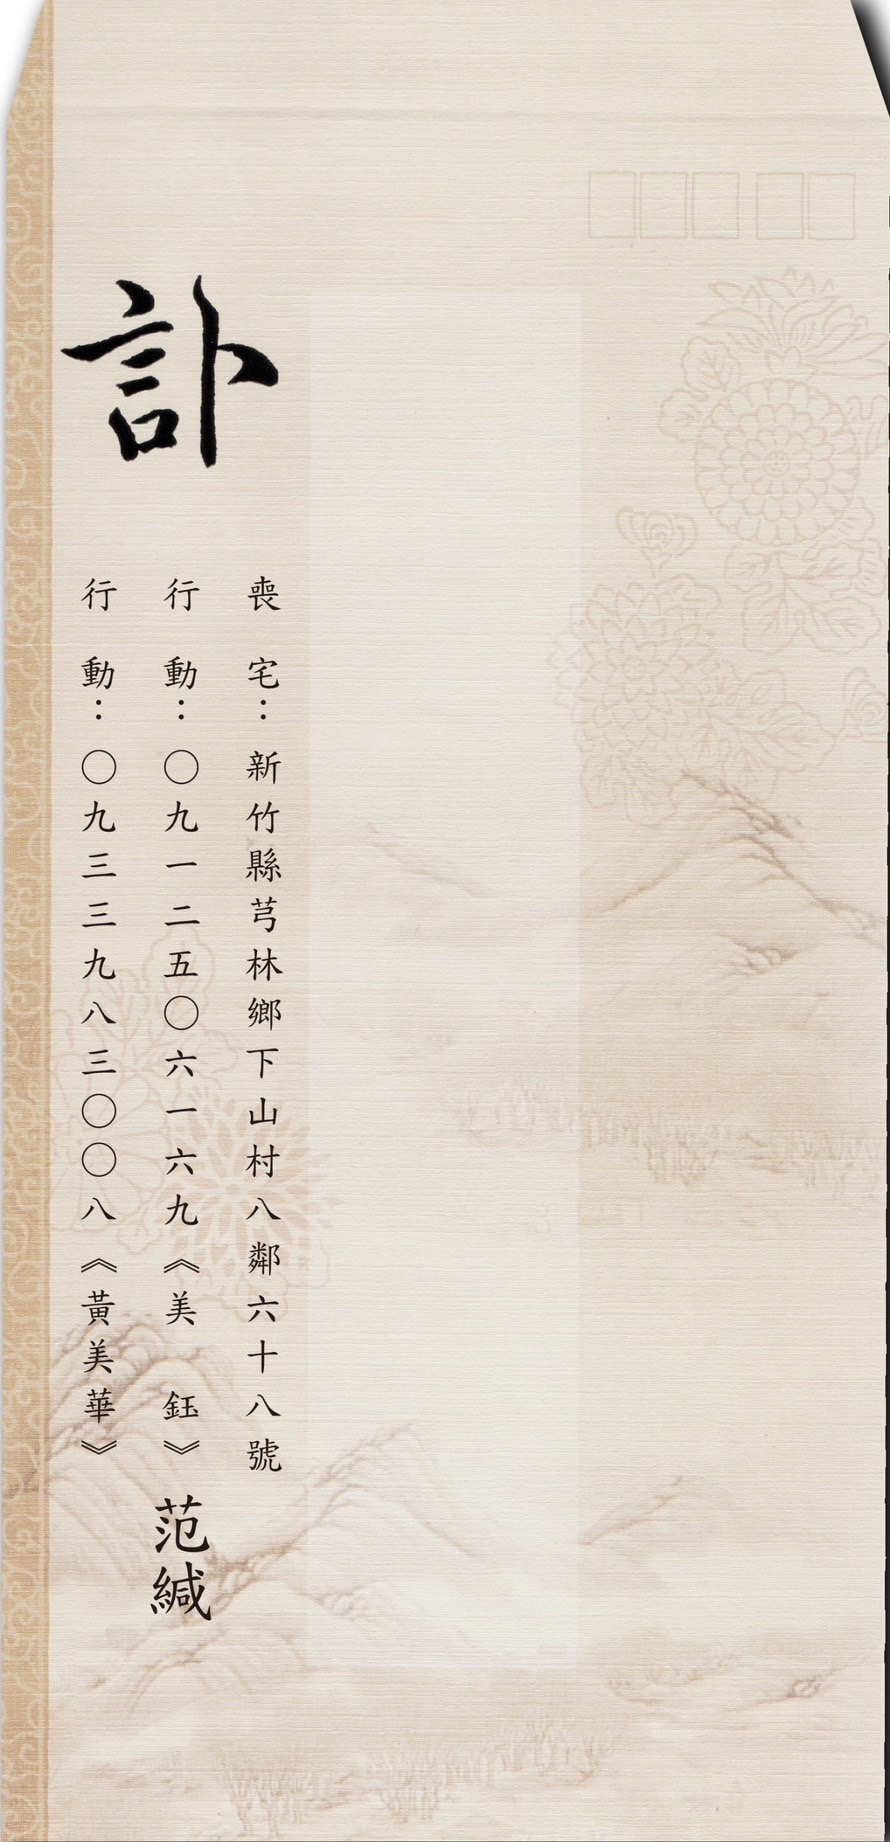 訃
喪宅：新竹縣芎林鄉下山村八鄰六十八號
行動：〇九一二五〇六一六九《美鈺》
行動：〇九三三九八三〇〇八《黃美華》
范緘